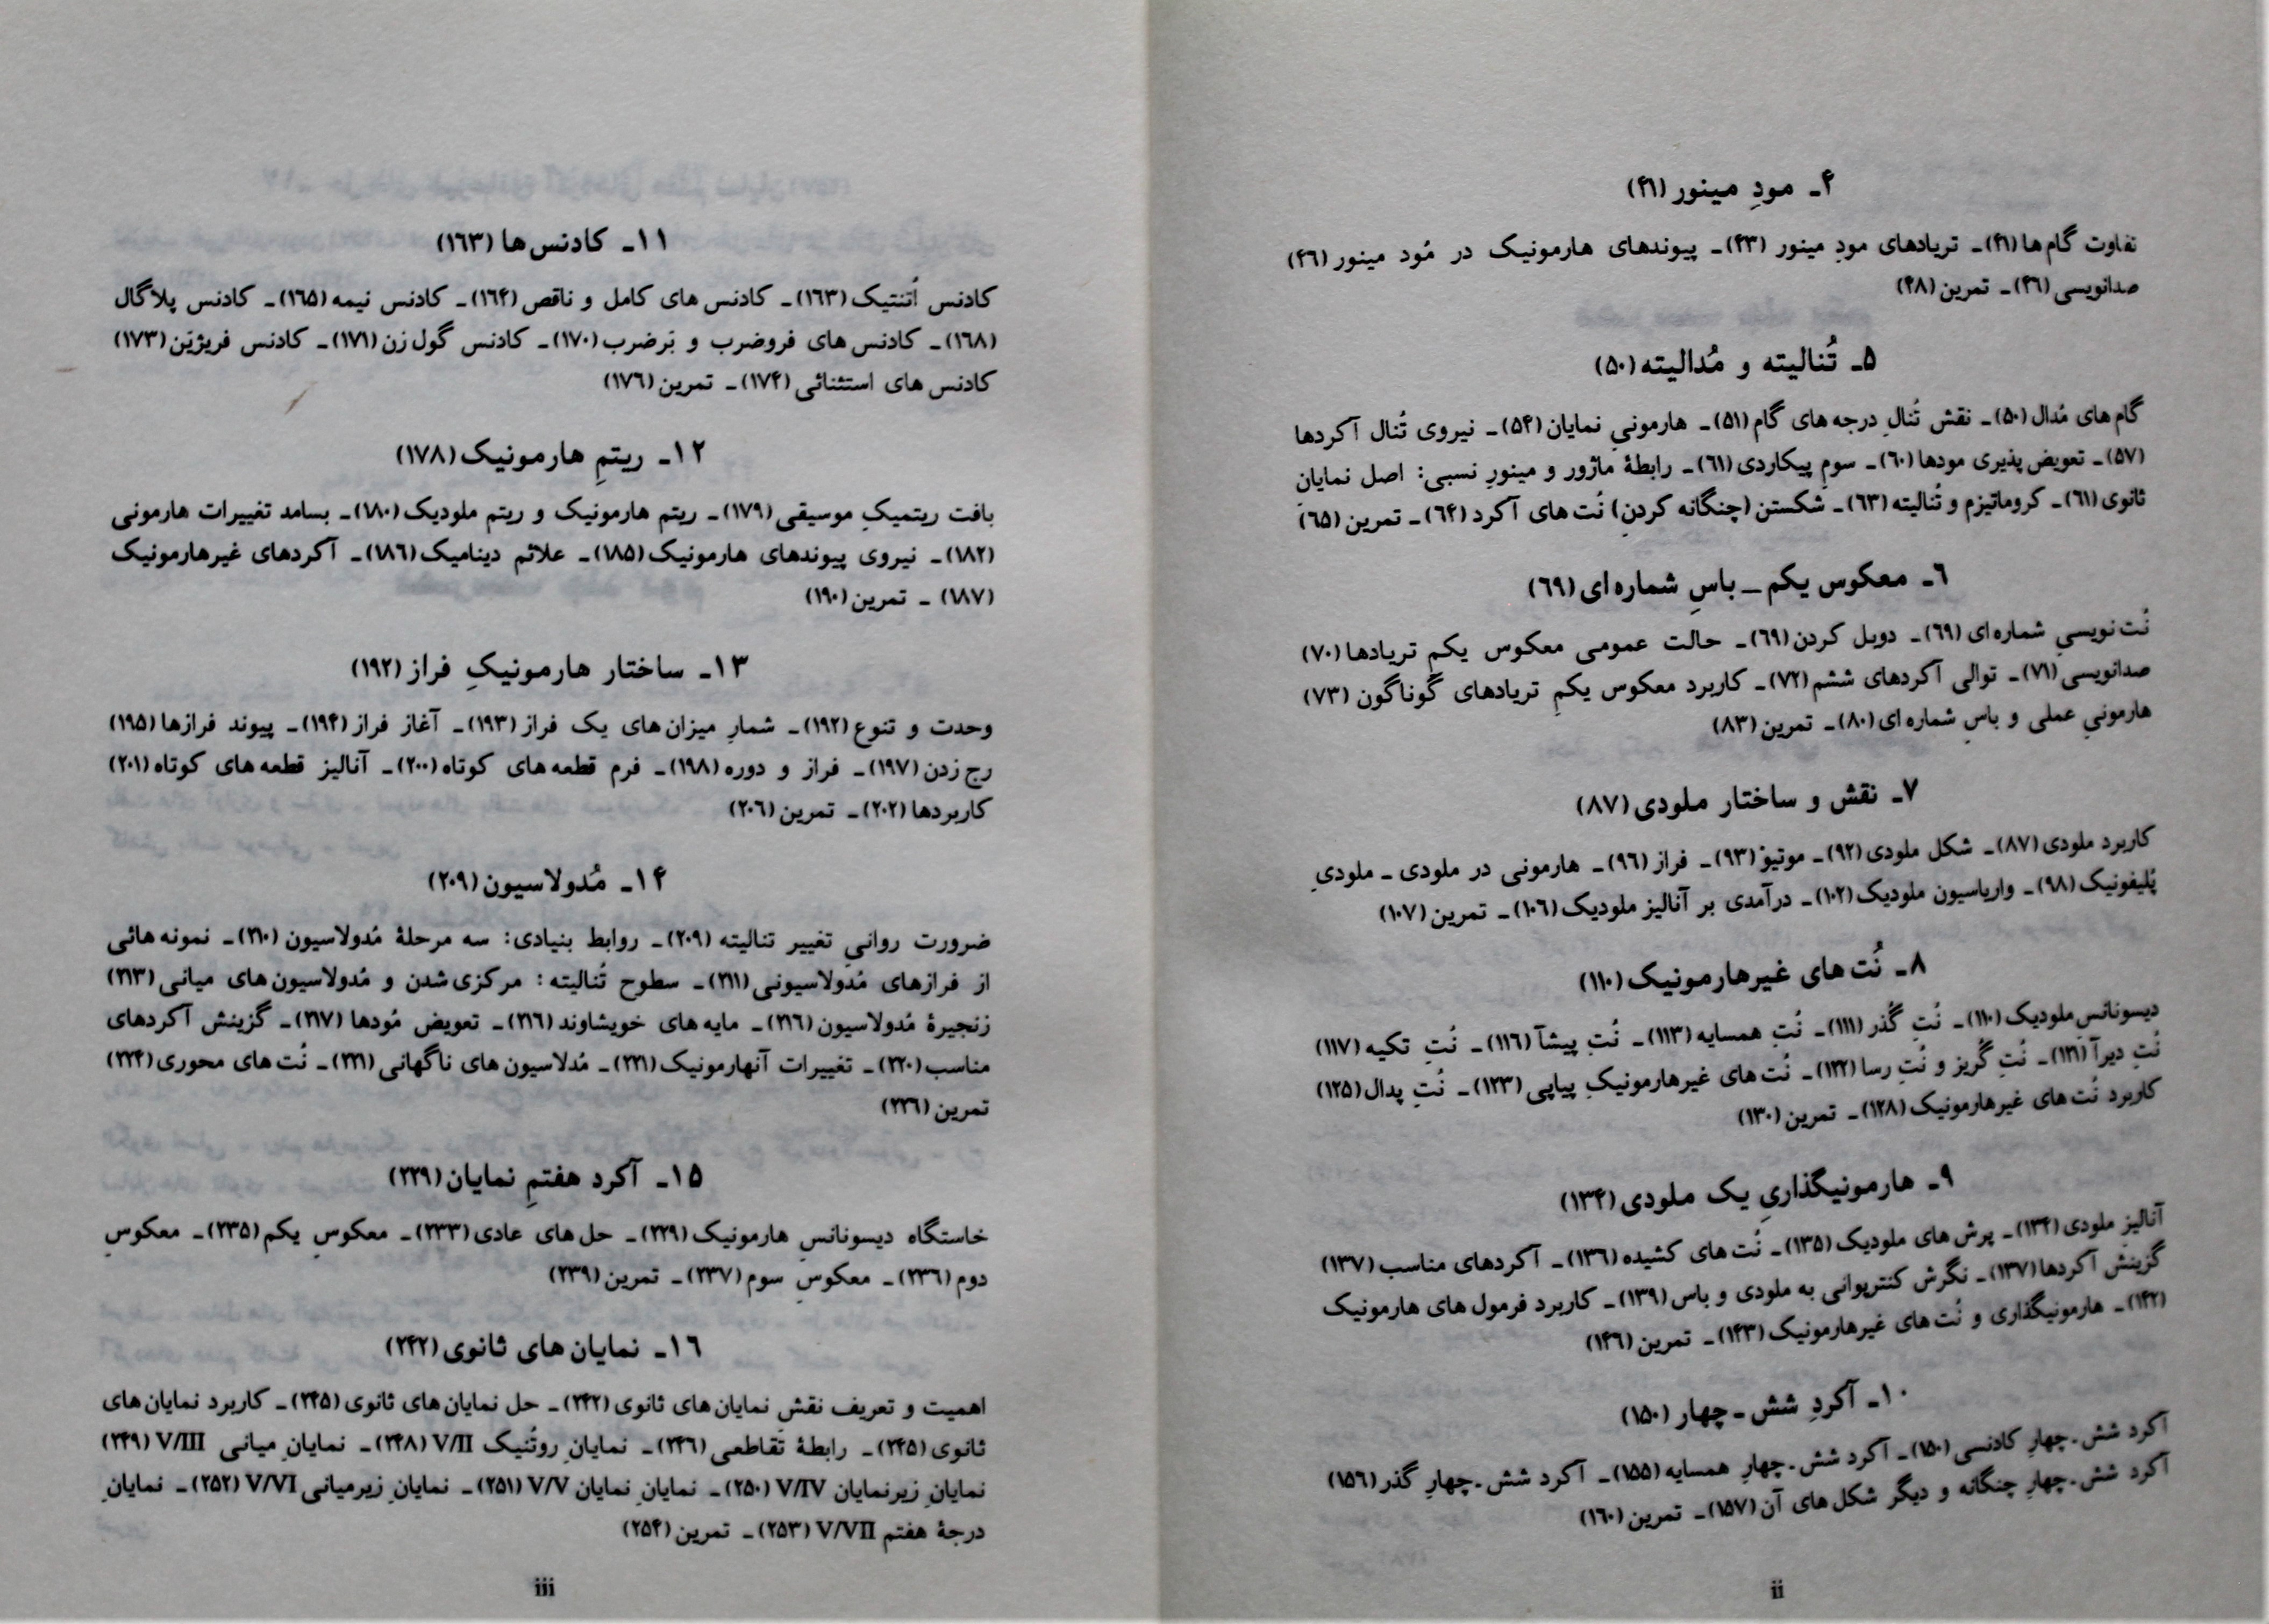 ۴ـ مودِ مینور (۴۱)
تفاوت گام‌ها (۴۱)ـ تریادهای مودِ مینور (۴۳)ـ پیوندهای هارمونیک در مُود مینور (۴۶)
صدانویسی (۴۶)ـ تمرین (۴۸)
۵ـ تُنالیته و مُدالیته (۵۰)
گام‌های مُدال (۵۰)ـ نقش تُنالِ درجه‌های گام (۵۱)ـ هارمونیِ نمایان (۵۴)ـ نیروی تُنال آکردها
(۵۷)ـ تعویض‌پذیری مودها (۶۰)ـ سومِ پیکاردی (۶۱)ـ رابطهٔ ماژور و مینورِ نسبی: اصل نمایانِ
ثانوی (۶۱)ـ کروماتیزم و تُنالیته (۶۳)ـ شکستن (چنگانه کردنِ) نُت‌های آکرد (۶۴)ـ تمرین (۶۵)
۶ـ معکوس یکم ــ باسِ شماره‌ای (۶۹)
نُت‌نویسیِ شماره‌ای (۶۹)ـ دوبل کردن (۶۹)ـ حالت عمومی معکوس یکمِ تریادها (۷۰)
صدانویسی (۷۱)ـ توالی آکردهای ششم (۷۲)ـ کاربرد معکوس یکمِ تریادهای گوناگون (۷۳)
هارمونیِ عملی و باسِ شماره‌ای (۸۰)ـ تمرین (۸۳)
۷ـ نقش و ساختار ملودی (۸۷)
کاربرد ملودی (۸۷)ـ شکل ملودی (۹۲)ـ موتیڤ (۹۳)ـ فراز (۹۶)ـ هارمونی در ملودی ـ ملودیِ
پُلیفونیک (۹۸)ـ واریاسیون ملودیک (۱۰۲)ـ درآمدی بر آنالیز ملودیک (۱۰۶)ـ تمرین (۱۰۷)
۸ـ نُت‌های غیرهارمونیک (۱۱۰)
دیسونانسِ ملودیک (۱۱۰)ـ نُتِ گُذر (۱۱۱)ـ نُتِ همسایه (۱۱۳)ـ نُتِ پیشآ (۱۱۶)ـ نُتِ تکیه (۱۱۷)
نُتِ دیرآ (۱۲۱)ـ نُتِ گُریز و نُتِ رسا (۱۲۲)ـ نُت‌های غیرهارمونیکِ پیاپی (۱۲۳)ـ نُتِ پدال (۱۲۵)
کاربرد نُت‌های غیرهارمونیک (۱۲۸)ـ تمرین (۱۳۰)
۹ـ هارمونیگذاریِ یک ملودی (۱۳۴)
آنالیزِ ملودی (۱۳۴)ـ پرش‌های ملودیک (۱۳۵)ـ نُت‌های کشیده (۱۳۶)ـ آکردهای مناسب (۱۳۷)
گزینشِ آکردها (۱۳۷)ـ نگرش کنترپوانی به ملودی و باس (۱۳۹)ـ کاربرد فرمول‌های هارمونیک
(۱۴۲)ـ هارمونیگذاری و نُت‌های غیرهارمونیک (۱۴۳)ـ تمرین (۱۴۶)
۱۰ـ آکردِ شش ـ چهار (۱۵۰)
آکرد شش ـ چهارِ کادنسی (۱۵۰)ـ آکرد شش ـ چهارِ همسایه (۱۵۵)ـ آکرد شش ـ چهارِ گذر (۱۵۶)
آکرد شش ـ چهارِ چنگانه و دیگر شکل‌های آن (۱۵۷)ـ تمرین (۱۶۰)
ii
۱۱ـ کادنس‌ها (۱۶۳)
کادنس اُتنتیک (۱۶۳)ـ کادنس‌های کامل و ناقص (۱۶۴)ـ کادنس نیمه (۱۶۵)ـ کادنس پلاگال
(۱۶۸)ـ کادنس‌های فروضرب و بَرضرب (۱۷۰)ـ کادنس گول‌زن (۱۷۱)ـ کادنس فریژیَن (۱۷۳)
کادنس‌های استثنائی (۱۷۴)ـ تمرین (۱۷۶)
۱۲ـ ریتمِ هارمونیک (۱۷۸)
بافت ریتمیکِ موسیقی (۱۷۹)ـ ریتم هارمونیک و ریتم ملودیک (۱۸۰)ـ بسامد تغییرات هارمونی
(۱۸۲)ـ نیروی پیوندهای هارمونیک (۱۸۵)ـ علائم دینامیک (۱۸۶)ـ آکردهای غیرهارمونیک
(۱۸۷) ـ تمرین (۱۹۰)
۱۳ـ ساختار هارمونیکِ فراز (۱۹۲)
وحدت و تنوع (۱۹۲)ـ شمارِ میزان‌های یک فراز (۱۹۳)ـ آغاز فراز (۱۹۴)ـ پیوند فرازها (۱۹۵)
رج‌زدن (۱۹۷)ـ فراز و دوره (۱۹۸)ـ فرم قطعه‌های کوتاه (۲۰۰)ـ آنالیز قطعه‌های کوتاه (۲۰۱)
کاربردها (۲۰۲)ـ تمرین (۲۰۶)
۱۴ـ مُدولاسیون (۲۰۹)
ضرورت روانیِ تغییر تنالیته (۲۰۹)ـ روابط بنیادی: سه مرحلهٔ مُدولاسیون (۲۱۰)ـ نمونه‌هائی
از فرازهای مُدولاسیونی (۲۱۱)ـ سطوح تُنالیته: مرکزی‌شدن و مُدولاسیون‌های میانی (۲۱۳)
زنجیرهٔ مُدولاسیون (۲۱۶)ـ مایه‌های خویشاوند (۲۱۶)ـ تعویض مُودها (۲۱۷)ـ گزینش آکردهای
مناسب (۲۲۰)ـ تغییرات آنهارمونیک (۲۲۱)ـ مُدلاسیون‌های ناگهانی (۲۲۱)ـ نُت‌های محوری (۲۲۴)
تمرین (۲۲۶)
۱۵ـ آکرد هفتمِ نمایان (۲۲۹)
خاستگاه دیسونانسِ هارمونیک (۲۲۹)ـ حل‌های عادی (۲۳۳)ـ معکوسِ یکم (۲۳۵)ـ معکوسِ
دوم (۲۳۶)ـ معکوسِ سوم (۲۳۷)ـ تمرین (۲۳۹)
۱۶ـ نمایان‌های ثانوی (۲۴۲)
اهمیت و تعریف نقشِ نمایان‌های ثانوی (۲۴۲)ـ حل نمایان‌های ثانوی (۲۴۵)ـ کاربرد نمایان‌های
ثانوی (۲۴۵)ـ رابطهٔ تَقاطعی (۲۴۶)ـ نمایانِ روتُنیک V/II (۲۴۸)ـ نمایانِ میانی V/III (۲۴۹)
نمایانِ زیرنمایان V/IV (۲۵۰)ـ نمایانِ نمایان V/V (۲۵۱)ـ نمایانِ زیرمیانی V/VI (۲۵۲)ـ نمایانِ
درجهٔ هفتم V/VII (۲۵۳)ـ تمرین (۲۵۴)
iii